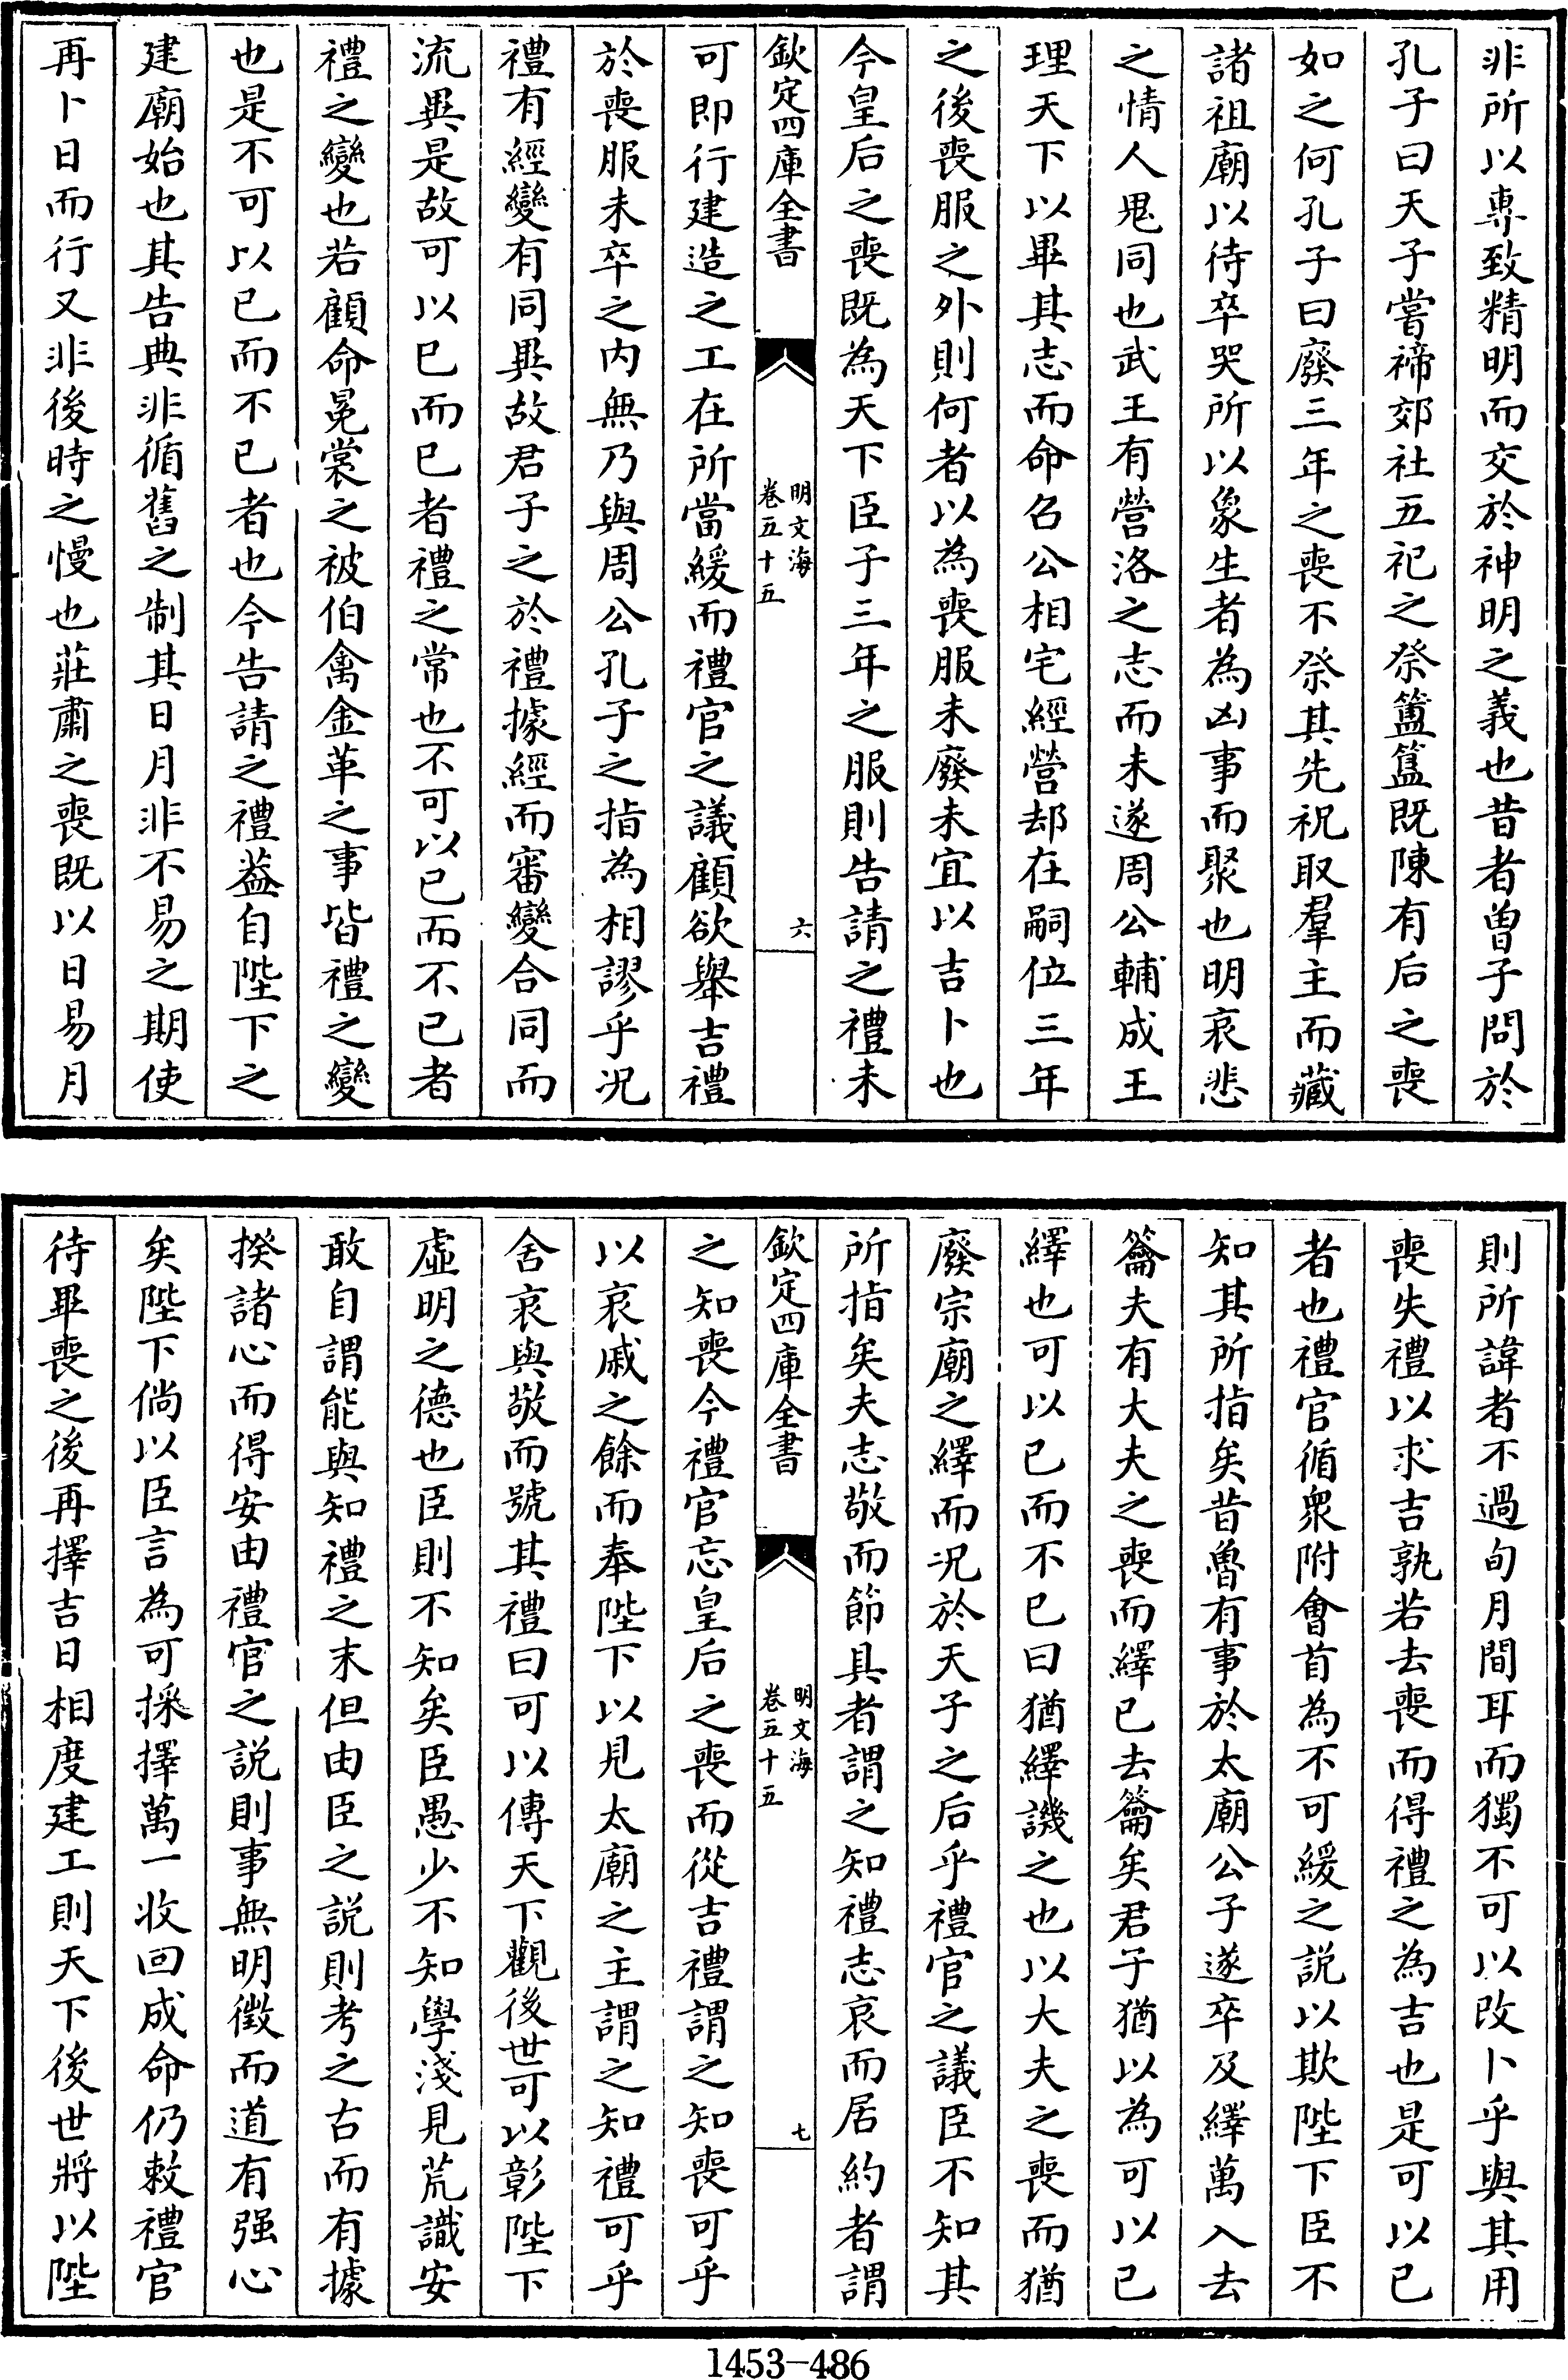 非所以專致精明而交於神明之義也昔者曾子問於
孔子曰天子嘗禘郊社五祀之祭簠簋既陳有后之喪
如之何孔子曰廢三年之喪不祭其先祝取羣主而藏
諸祖廟以待卒哭所以象生者為凶事而聚也明哀悲
之情人鬼同也武王有營洛之志而未遂周公輔成王
理天下以畢其志而命召公相宅經營却在嗣位三年
之後喪服之外則何者以為喪服未廢未宜以吉卜也
今皇后之喪既為天下臣子三年之服則告請之禮未
欽定四庫全書
明文海
卷五十五
六
可即行建造之工在所當緩而禮官之議顧欲舉吉禮
於喪服未卒之内無乃與周公孔子之指為相謬乎况
禮有經變有同異故君子之於禮據經而審變合同而
流異是故可以已而已者禮之常也不可以已而不已者
禮之變也若顧命冕裳之被伯禽金革之事皆禮之變
也是不可以已而不已者也今告請之禮蓋自陛下之
建廟始也其告典非循舊之制其日月非不易之期使
再卜日而行又非後時之慢也莊肅之喪既以日易月
則所諱者不過旬月間耳而獨不可以改卜乎與其用
喪失禮以求吉孰若去喪而得禮之為吉也是可以已
者也禮官循衆附會首為不可緩之說以欺陛下臣不
知其所指矣昔魯有事於太廟公子遂卒及繹萬入去
籥夫有大夫之喪而繹已去籥矣君子猶以為可以已
繹也可以已而不已曰猶繹譏之也以大夫之喪而猶
廢宗廟之繹而况於天子之后乎禮官之議臣不知其
所指矣夫志敬而節具者謂之知禮志哀而居約者謂
欽定四庫全書
明文海
卷五十五
七
之知喪今禮官忘皇后之喪而從吉禮謂之知喪可乎
以哀戚之餘而奉陛下以見太廟之主謂之知禮可乎
舍哀與敬而號其禮曰可以傳天下觀後世可以彰陛下
虛明之德也臣則不知矣臣愚少不知學淺見荒識安
敢自謂能與知禮之末但由臣之說則考之古而有據
揆諸心而得安由禮官之說則事無明徵而道有强心
矣陛下倘以臣言為可採擇萬一收回成命仍敕禮官
待畢喪之後再擇吉日相度建工則天下後世將以陛
1453-486